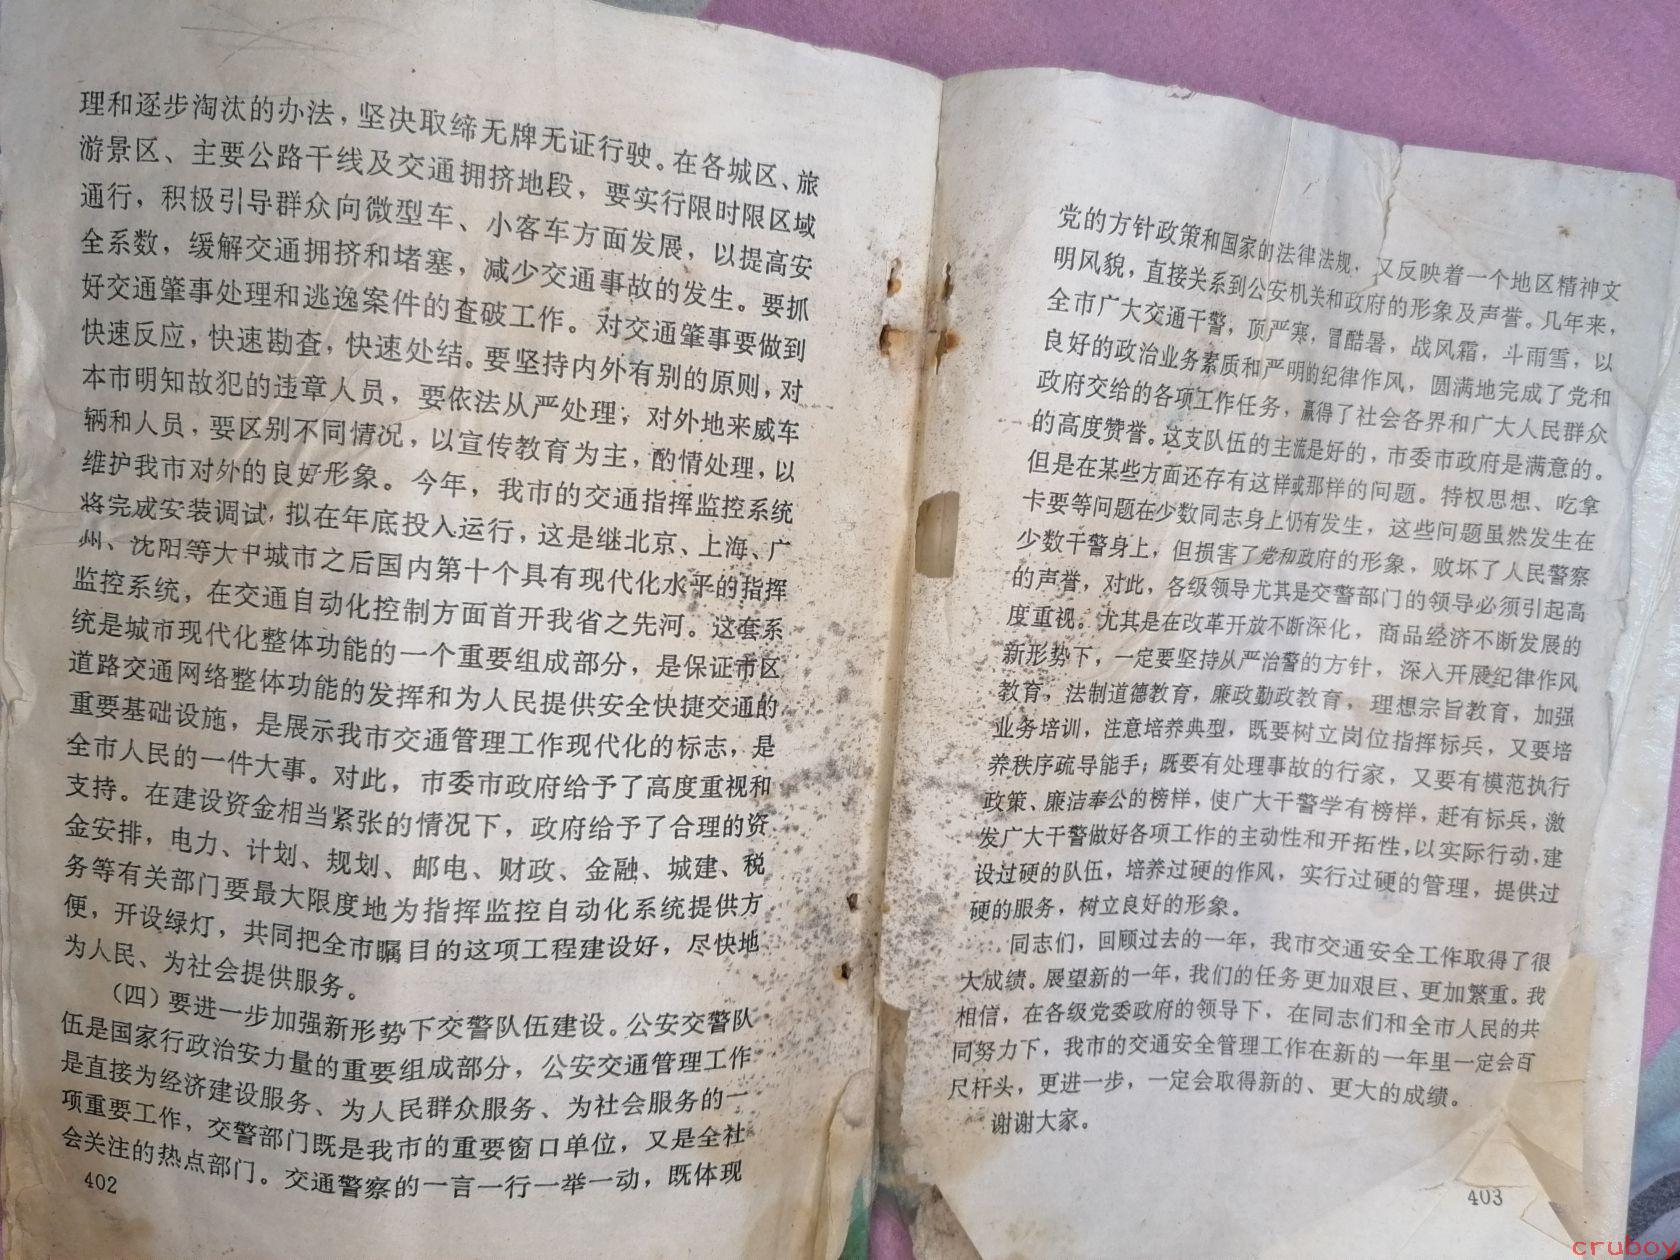 理和逐步淘汰的办法，坚决取缔无牌无证行驶。在各城区、旅
游景区、主要公路干线及交通拥挤地段，要实行限时限区域
通行，积极引导群众向微型车、小客车方面发展，以提高安
全系数，缓解交通拥挤和堵塞，减少交通事故的发生。要抓
好交通肇事处理和逃逸案件的查破工作。对交通肇事要做到
快速反应，快速勘查，快速处结。要坚持内外有别的原则，对
本市明知故犯的违章人员，要依法从严处理；对外地来威车
辆和人员，要区别不同情况，以宣传教育为主，酌情处理，以
维护我市对外的良好形象。今年，我市的交通指挥监控系统
将完成安装调试，拟在年底投入运行，这是继北京、上海、广
州、沈阳等大中城市之后国内第十个具有现代化水平的指挥
监控系统，在交通自动化控制方面首开我省之先河。这套系
统是城市现代化整体功能的一个重要组成部分，是保证市区
道路交通网络整体功能的发挥和为人民提供安全快捷交通的
重要基础设施，是展示我市交通管理工作现代化的标志，是
全市人民的一件大事。对此，市委市政府给予了高度重视和
支持。在建设资金相当紧张的情况下，政府给予了合理的资
金安排，电力、计划、规划、邮电、财政、金融、城建、税
务等有关部门要最大限度地为指挥监控自动化系统提供方
便，开设绿灯，共同把全市瞩目的这项工程建设好，尽快地
为人民、为社会提供服务。
（四）要进一步加强新形势下交警队伍建设。公安交警队
伍是国家行政治安力量的重要组成部分，公安交通管理工作
是直接为经济建设服务、为人民群众服务、为社会服务的一
项重要工作，交警部门既是我市的重要窗口单位，又是全社
会关注的热点部门。交通警察的一言一行一举一动，既体现
402
党的方针政策和国家的法律法规，又反映着一个地区精神文
明风貌，直接关系到公安机关和政府的形象及声誉。几年来，
全市广大交通干警，顶严寒，冒酷暑，战风霜，斗雨雪，以
良好的政治业务素质和严明的纪律作风，圆满地完成了党和
政府交给的各项工作任务，赢得了社会各界和广大人民群众
的高度赞誉。这支队伍的主流是好的，市委市政府是满意的。
但是在某些方面还存有这样或那样的问题。特权思想、吃拿
卡要等问题在少数同志身上仍有发生，这些问题虽然发生在
少数干警身上，但损害了党和政府的形象，败坏了人民警察
的声誉，对此，各级领导尤其是交警部门的领导必须引起高
度重视。尤其是在改革开放不断深化，商品经济不断发展的
新形势下，一定要坚持从严治警的方针，深入开展纪律作风
教育，法制道德教育，廉政勤政教育，理想宗旨教育，加强
业务培训，注意培养典型，既要树立岗位指挥标兵，又要培
养秩序疏导能手；既要有处理事故的行家，又要有模范执行
政策、廉洁奉公的榜样，使广大干警学有榜样，赶有标兵，激
发广大干警做好各项工作的主动性和开拓性，以实际行动，建
设过硬的队伍，培养过硬的作风，实行过硬的管理，提供过
硬的服务，树立良好的形象。
同志们，回顾过去的一年，我市交通安全工作取得了很
大成绩。展望新的一年，我们的任务更加艰巨、更加繁重。我
相信，在各级党委政府的领导下，在同志们和全市人民的共
同努力下，我市的交通安全管理工作在新的一年里一定会百
尺杆头，更进一步，一定会取得新的、更大的成绩。
谢谢大家。
403
cruboy